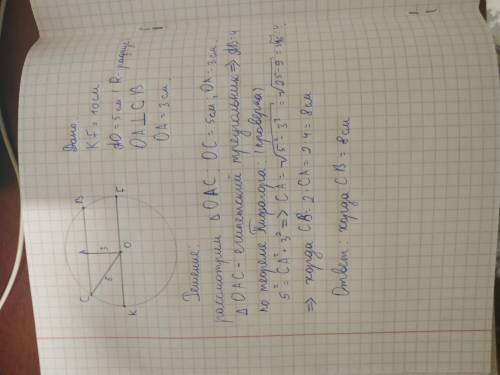 Дано
KE = 10 см
KO = 5 см (R - радиус)
OA ⊥ CB
OA = 3 см.
C
A
B
3
5
K
O
E
Решение.
рассмотрим △ OAC: OC = 5см, OA = 3см
△ OAC - египетский треугольник => AB = 4
по теореме Пифагора: (проверка)
5² = CA² + 3² => CA = √5² - 3² = √25 - 9 = √16 = 4
=> хорда CB = 2 · CA = 2 · 4 = 8см
Ответ: хорда CB = 8см